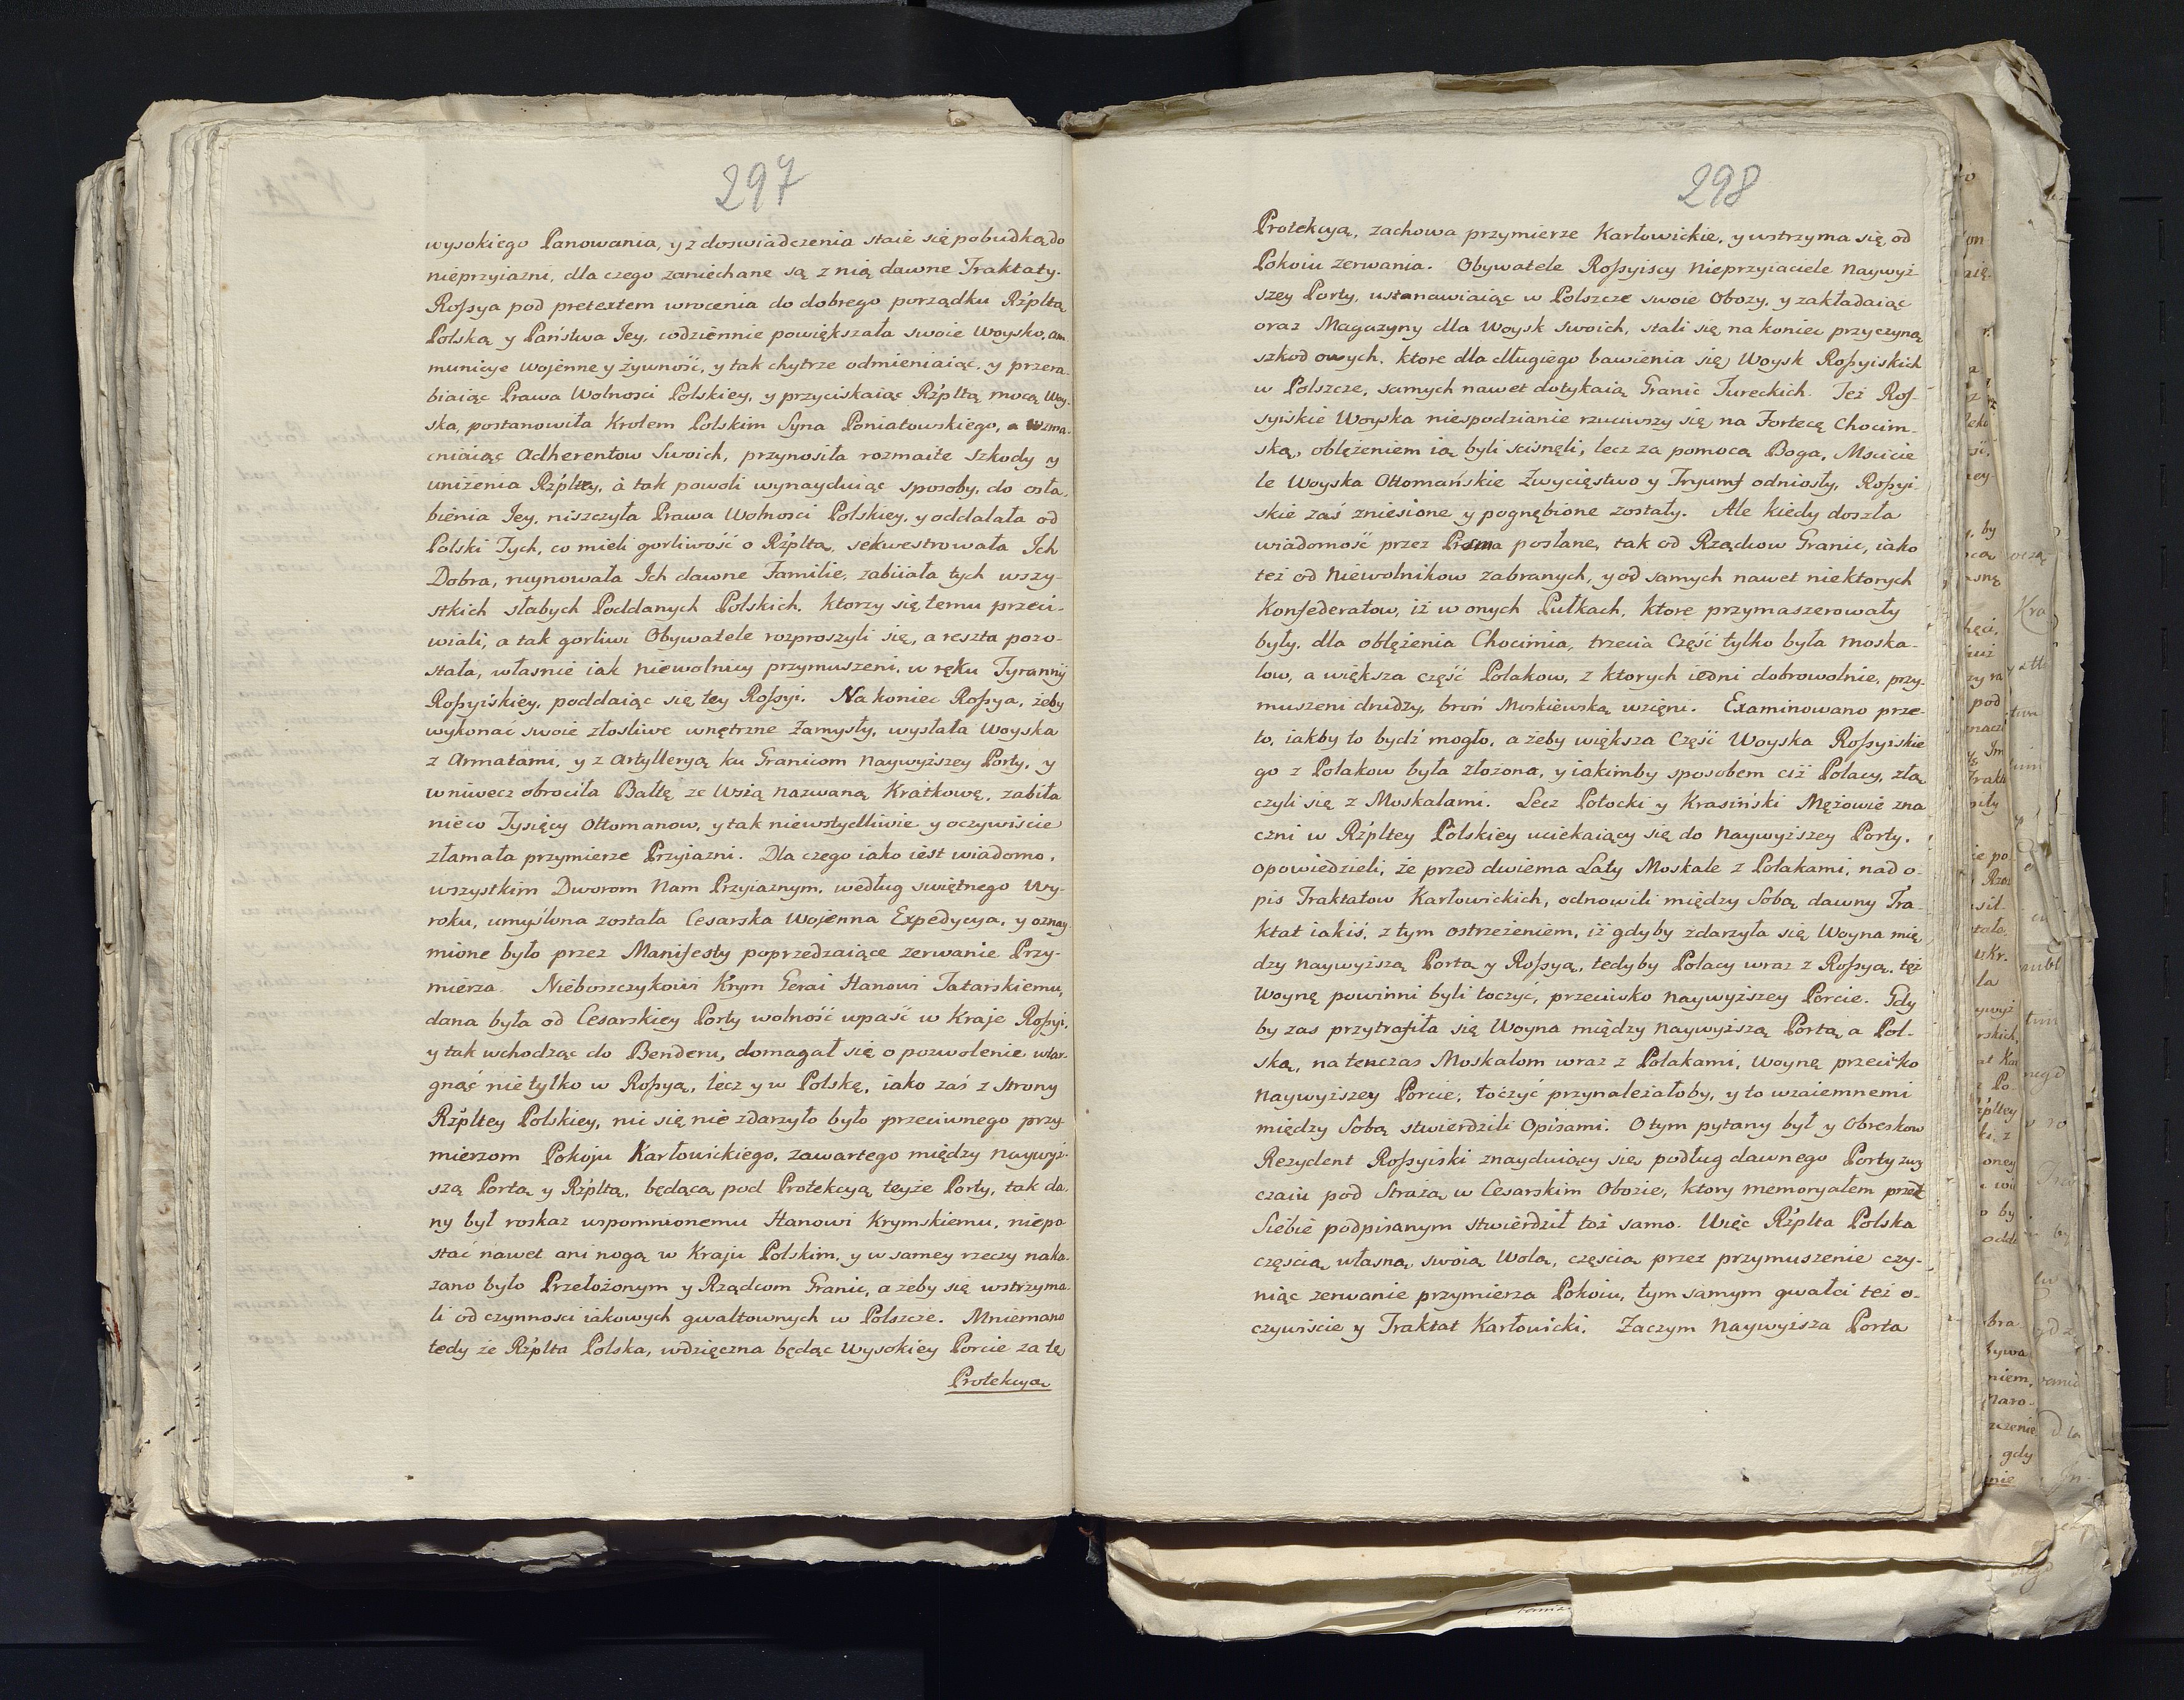 297
wysokiego Panowania, y z doswiadczenia staie się pobudką do
nieprzyiazni, dla czego zaniechane są z nią dawne Traktaty.
Roſsya pod pretextem wrocenia do dobrego porządku Rzplta
Polską y Państwa Jey, codziennie powiększała swoie Woysko, am
municye wojenne y żywność, y tak chytrze odmieniaiąc, y przera-
biaiąc Prawa Wolnosci Polskiey, y przyciskaiąc Rzpltą mocą Woy-
ska, postanowiła Krolem Polskim Syna Poniatowskiego, a wzma-
cniaiąc Adherentow Swoich, przynosiła rozmaite Szkody y
uniżenia Rzpltey, à tak powoli wynayduiąc sposoby, do osła-
bienia Jey, niszczyła Prawa Wolnosci Polskiey, y oddalała od
Polski Tych, co mieli gorliwość o Rzpltą, sekwestrowała Ich
Dobra, ruynowała Ich dawne Familie, zabiiała tych wszy-
stkich słabych Poddanych Polskich, ktorzy się temu przeci-
wiali, a tak gorliwi Obywatele rozproszyli się, a reszta pozo-
stała, własnie iak niewolnicy przymuszeni, w ręku Tyrannij
Roſsyiskiey, poddaiąc się tey Roſsyi. Na koniec Roſsya, żeby
wykonać swoie złosliwe wnętrzne zamysły, wysłała Woyska
z Armatami, y z Artylleryą ku Granicom Naywyższey Porty, y
wniwecz obrociła Baltę ze Wsią nazwaną Kratkowę, zabiła
nieco Tysięcy Ottomanow, y tak niewstydliwie y oczywiscie
złamała przymierze Przyiazni. Dla czego iako iest wiadomo,
wszystkim Dworom Nam Przyiaznym, według swiętnego Wy-
roku, umyślona została Cesarska Wojenna Expedycya, y oznay-
mione było przez Manifesty poprzedzaiące zerwanie Przy-
mierza. Nieboszczykowi Krym Gerai Hanowi Tatarskiemu,
dana była od Cesarskiey Porty wolność wpaść w Kraje Roſsyi,
y tak wchodząc do Benderu, domagał się o pozwolenie wtar-
gnąć nie tylko w Roſsyą, lecz y w Polskę, iako zaś z Strony
Rzpltey Polskiey, nic się nie zdarzyło było przeciwnego przy-
mierzom Pokoju Karłowickiego, zawartego między Naywyż-
szą Portą y Rzpltą, będącą pod Protekcyą teyże Porty, tak da-
ny był roskaz wspomnionemu Hanowi Krymskiemu, niepo
stać nawet ani nogą w Kraju Polskim, y w samey rzeczy naka-
zano było Przełożonym y Rządcom Granic, a zeby się wstrzyma-
li od czynnosci iakowych gwałtownych w Polszcze. Mniemano
tedy że Rzplta Polska, wdzięczna będąc Wysokiey Porcie za tę
Protekcyą
298
Protekcyą, zachowa przymierze Karłowickie, y wstrzyma się, od
Pokoiu zerwania. Obywatele Roſsyiscy Nieprzyiaciele Naywyż
szey Porty, ustanawiaiąc w Polszcze swoie Obozy, y zakładaiąc
oraz Magazyny dla Woysk Swoich, stali się na koniec przyczyną
szkod owych, ktore dla długiego bawienia się Woysk Roſsyiskich
w Polszcze, samych nawet dotykaią Granic Tureckich. Też Roſ-
syiskie Woyska niespodzianie rzuciwszy się na Fortecę Chocim-
ską, oblężeniem ią byli scisnęli, lecz za pomocą Boga, Mscicie
le Woyska Ottomańskie Zwycięstwo y Tryumf odniosły, Roſsyi-
skie zaś zniesione y pognębione zostały. Ale kiedy doszła
wiadomość przez Pisma posłane, tak od Rządcow Granic, iako
też od Niewolnikow zabranych, y od samych nawet niektorych
Konfederatow, iż w onych Pułkach, ktore przymaszerowały
były, dla oblężenia Chocimia, trzecia Część tylko była Moska-
low, a większa część Polakow, z ktorych iedni dobrowolnie, przy-
muszeni drudzy, broń Moskiewską wzięni. Examinowano prze-
to, iakby to bydź mogło, a żeby większa Część Woyska Roſsyiskie
go z Polakow była złożona, y iakimby sposobem ciż Polacy, złą
czyli się z Moskalami. Lecz Potocki y Krasiński Mężowie zna
czni w Rzpltey Polskiey uciekaiący się do Naywyższey Porty,
opowiedzieli, że przed dwiema Laty Moskale z Polakami, nad o-
pis Traktatow Karłowickich, odnowili między Sobą dawny Tra-
ktat iakiś, z tym ostrzeżeniem, iż gdyby zdarzyła się Woyna mię
dzy Naywyższą Portą y Roſsyą, tedyby Polacy wraz z Roſsyą, też
Woynę powinni byli toczyć, przeciwko Naywyższey Porcie. Gdy
by zas przytrafiła się Woyna między Naywyższą Portą a Pol-
ską, na tenczas Moskalom wraz z Polakami, Woynę przeciwko
Naywyższey Porcie, toczyć przynależałoby, y to wzaiemnemi
między Sobą stwierdzili Opisami. O tym pytany był y Obreskow
Rezydent Roſsyiski znayduiący się podług dawnego Porty zwy
czaiu pod Strażą w Cesarskim Obozie, ktory memoryałem przez
Siebie podpisanym stwierdził toż samo. Więc Rzplta Polska
częscią własną swoią Wolą, częscią przez przymuszenie czy-
niąc zerwanie przymierza Pokoiu, tym samym gwałci też o-
czywiscie y Traktat Karłowicki. Zaczym Naywyższa Porta